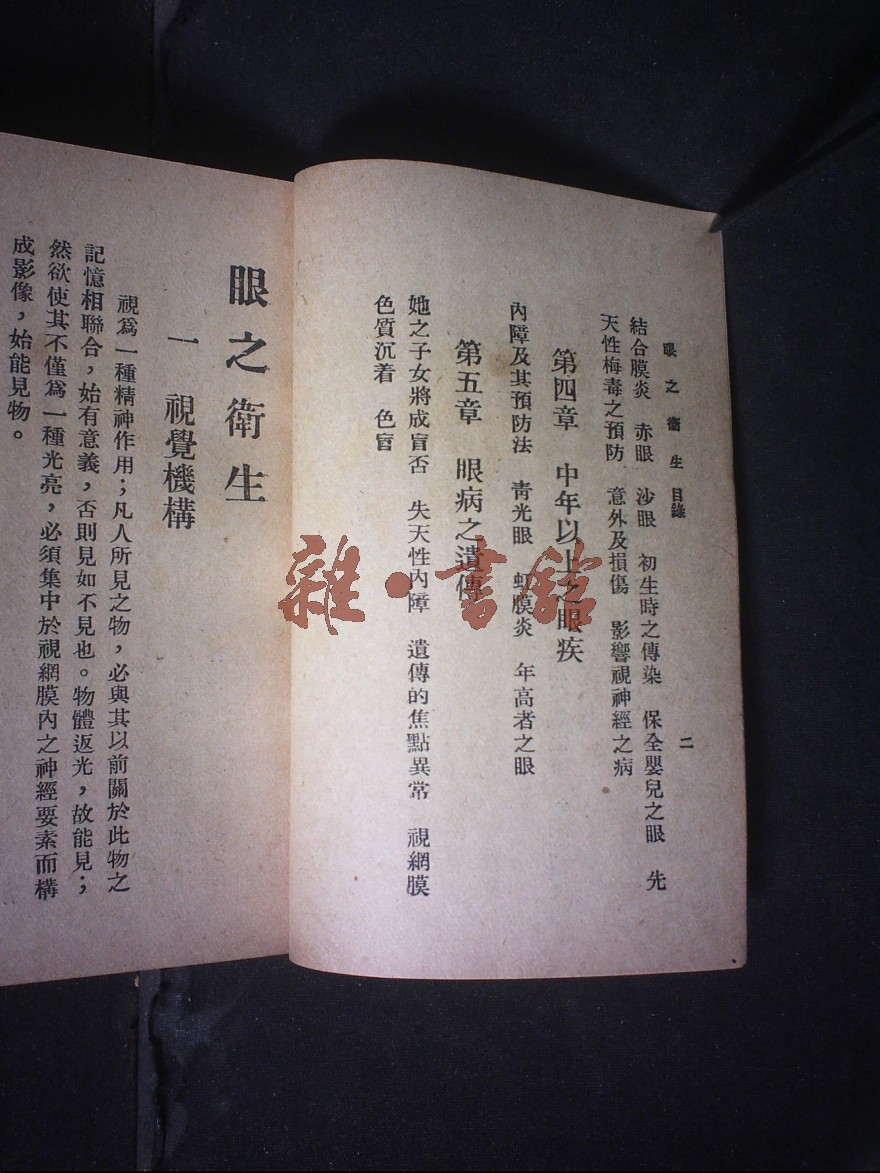 眼之衛生 目錄 二
結合膜炎 赤眼 沙眼 初生時之傳染 保全嬰兒之眼 先
天性梅毒之預防 意外及損傷 影響視神經之病
第四章 中年以上之眼疾
內障及其預防法 青光眼 虹膜炎 年高者之眼
第五章 眼病之遺傳
她之子女將成盲否 失天性內障 遺傳的焦點異常 視網膜
色質沉着 色盲
眼之衛生
一 視覺機構
視爲一種精神作用；凡人所見之物，必與其以前關於此物之
記憶相聯合，始有意義，否則見如不見也。物體返光，故能見；
然欲使其不僅爲一種光亮，必須集中於視網膜內之神經要素而構
成影像，始能見物。
雜·書館